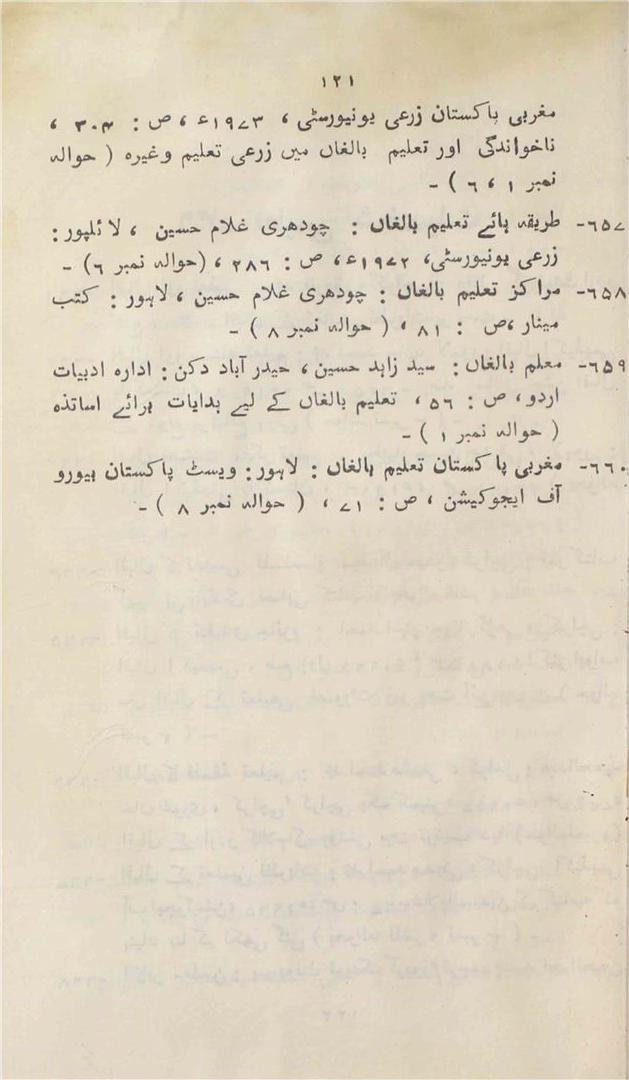 ۱۲۱
مغربی پاکستان زرعی یونیورسٹی ، ۱۹۷۳ء ، ص : ۳۰۴ ،
ناخواندگی اور تعلیم بالغاں میں زرعی تعلیم وغیرہ ( حوالہ
نمبر ۱ ، ۶ ) -
۶۵۷- طریقہ ہائے تعلیم بالغاں : چودھری غلام حسین ، لائلپور :
زرعی یونیورسٹی، ۱۹۷۲ء، ص : ۲۸۶ ، (حوالہ نمبر ۶) -
۶۵۸- مراکز تعلیم بالغاں : چودھری غلام حسین ، لاہور : کتب
مینار ،ص : ۸۱ ، ( حوالہ نمبر ۸ ) -
۶۵۹- معلم بالغاں : سید زاہد حسین ، حیدر آباد دکن : ادارہ ادبیات
اردو ، ص : ۵۶ ، تعلیم بالغاں کے لیے ہدایات برائے اساتذہ
( حوالہ نمبر ۱ ) -
۶۶۰- مغربی پاکستان تعلیم بالغاں : لاہور : ویسٹ پاکستان بیورو
آف ایجوکیشن ، ص : ۷۱ ، ( حوالہ نمبر ۸ ) -